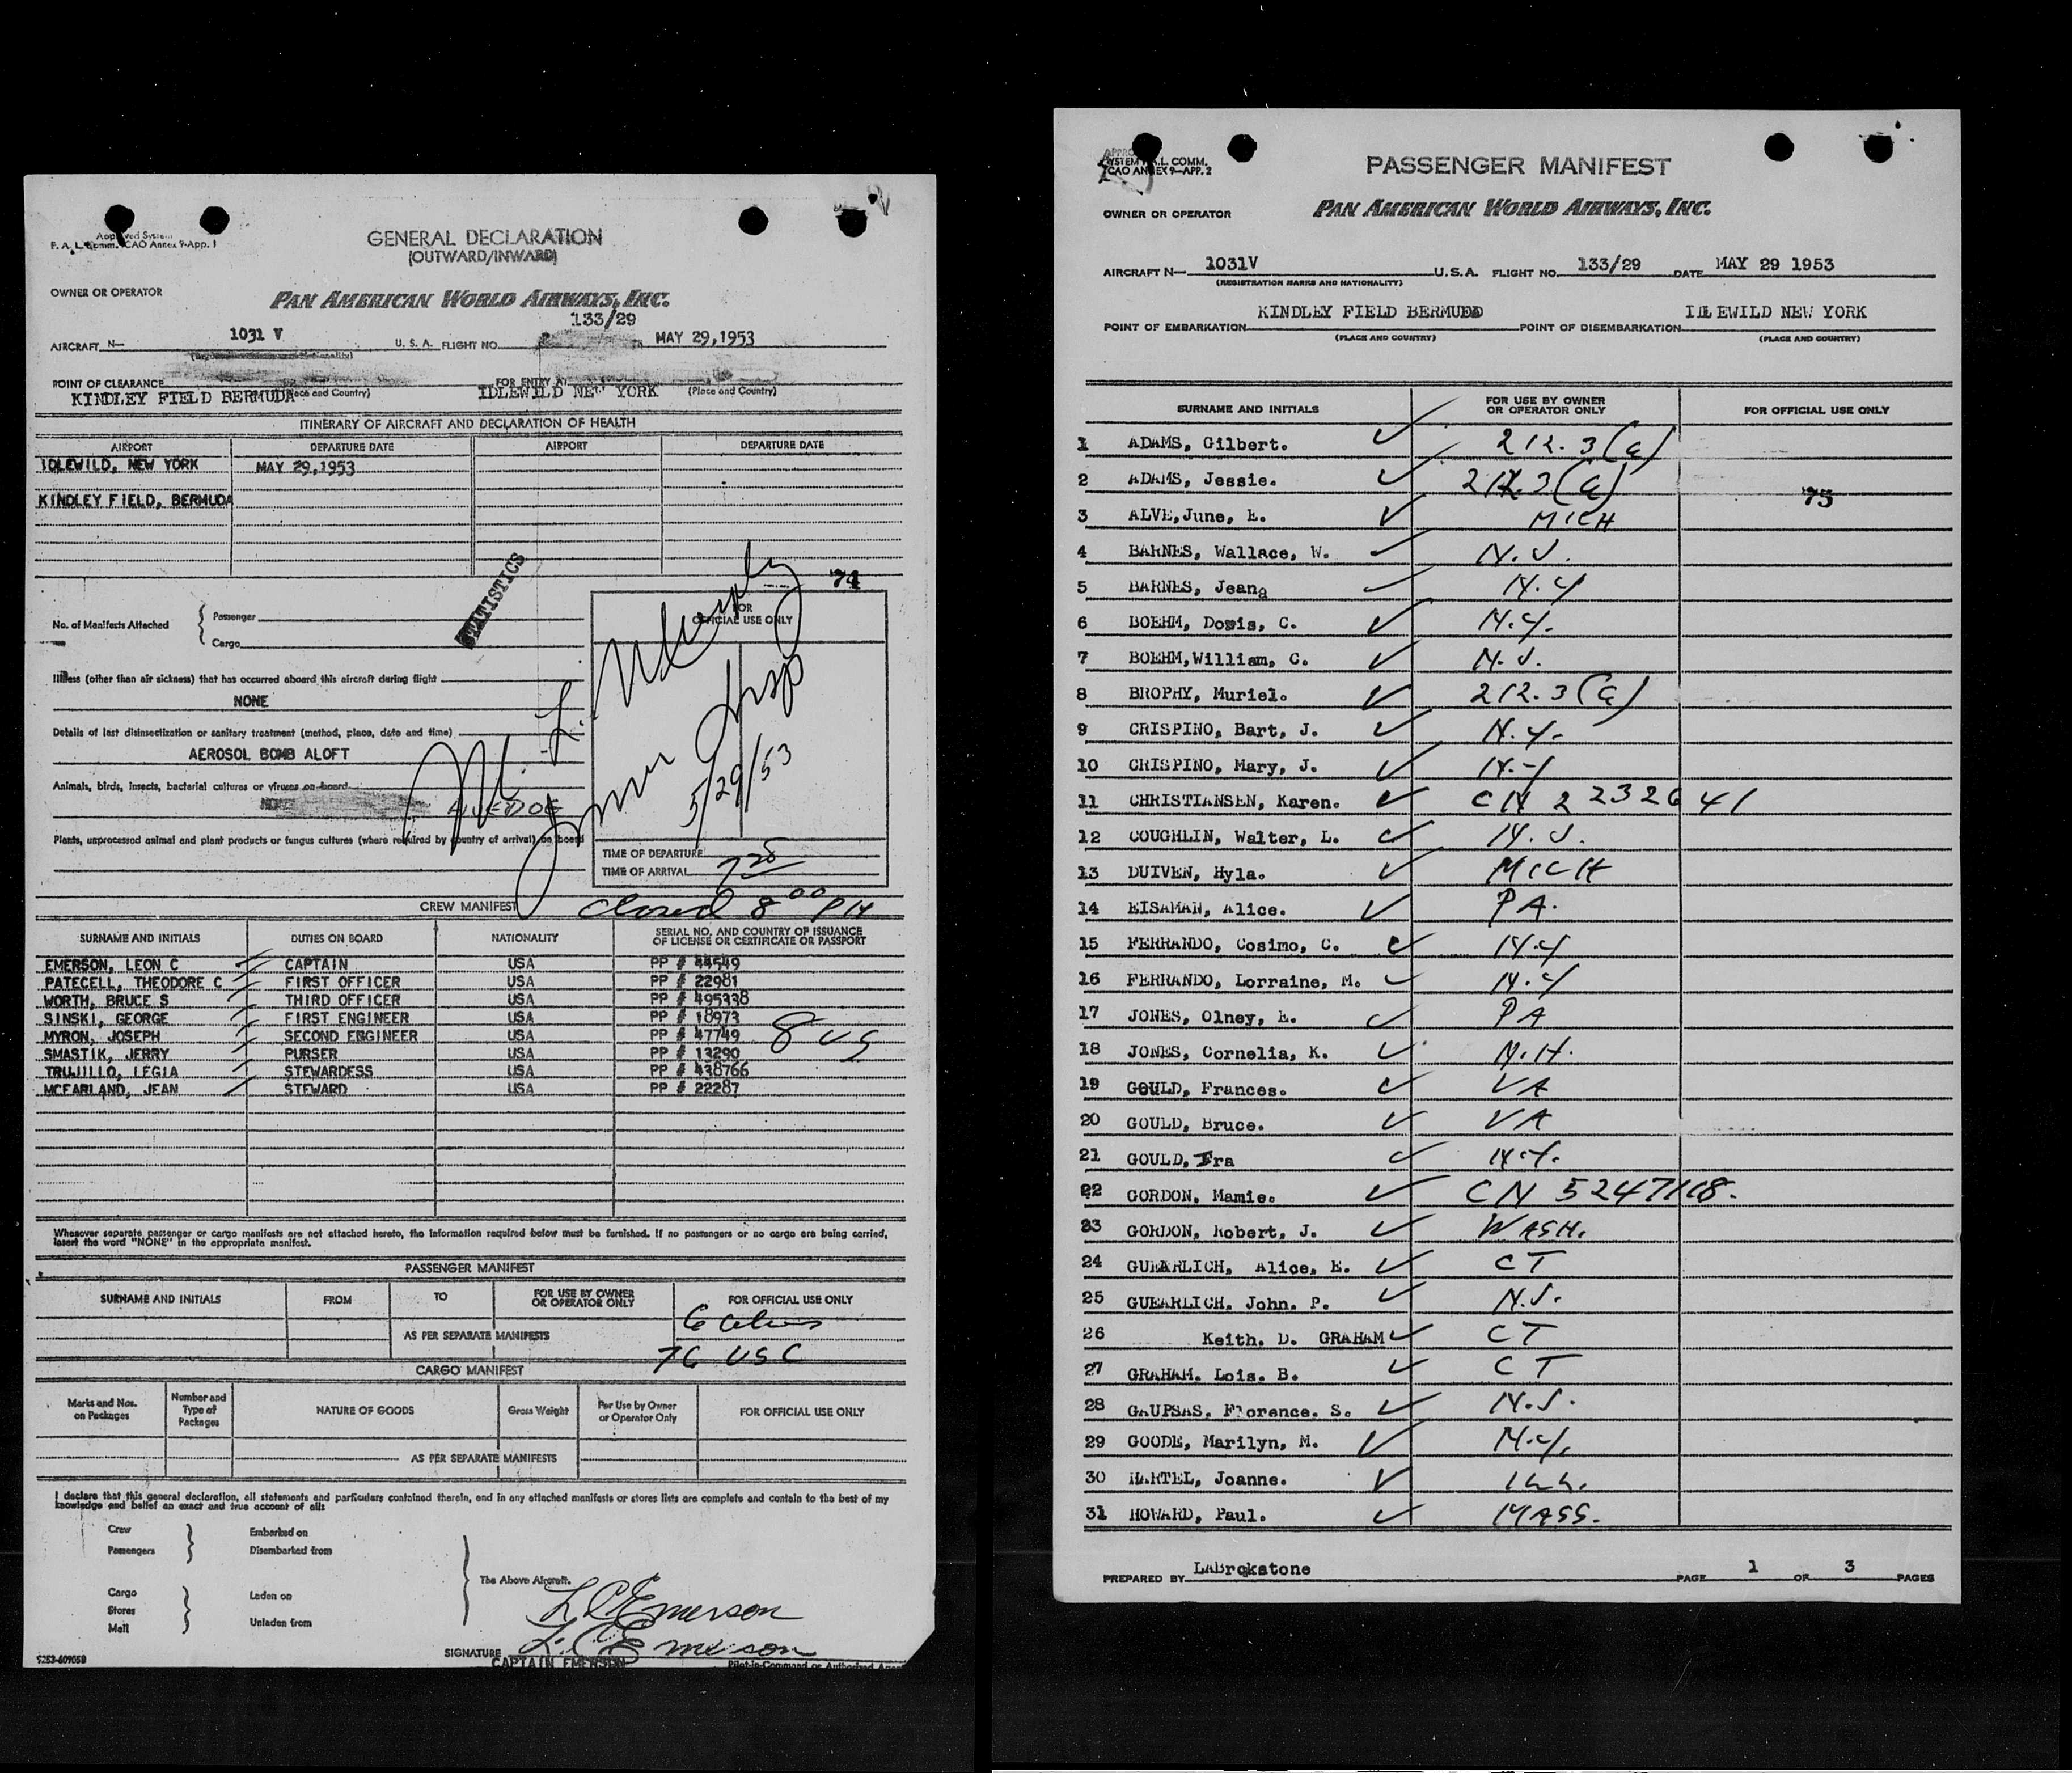 Approved System
F. A. L. Comm. ICAO Annex 9-App. I
GENERAL DECLARATION
(OUTWARD/INWARD)
OWNER OR OPERATOR
PAN AMERICAN WORLD AIRWAYS, INC.
133/29
AIRCRAFT N— 1031 V U. S. A. FLIGHT NO. MAY 29,1953
POINT OF CLEARANCE FOR ENTRY AT
KINDLEY FIELD BERMUDA (Place and Country) IDLEWILD NEW YORK (Place and Country)
ITINERARY OF AIRCRAFT AND DECLARATION OF HEALTH
AIRPORT DEPARTURE DATE AIRPORT DEPARTURE DATE
IDLEWILD, NEW YORK MAY 29,1953
KINDLEY FIELD, BERMUDA
STATISTICS
74
No. of Manifests Attached { Passenger
Cargo
FOR
OFFICIAL USE ONLY
Illness (other than air sickness) that has occurred aboard this aircraft during flight
NONE
Details of last disinsectization or sanitary treatment (method, place, date and time)
AEROSOL BOMB ALOFT
Animals, birds, insects, bacterial cultures or viruses on board
5/29/53
Plants, unprocessed animal and plant products or fungus cultures (where required by country of arrival) on board
TIME OF DEPARTURE
TIME OF ARRIVAL 725
CREW MANIFEST closed 8 00 PM
SURNAME AND INITIALS DUTIES ON BOARD NATIONALITY SERIAL NO. AND COUNTRY OF ISSUANCE OF LICENSE OR CERTIFICATE OR PASSPORT
EMERSON, LEON C CAPTAIN USA PP # 44549
PATECELL, THEODORE C FIRST OFFICER USA PP # 22981
WORTH, BRUCE S THIRD OFFICER USA PP # 495338
SINSKI, GEORGE FIRST ENGINEER USA PP # 18973
MYRON, JOSEPH SECOND ENGINEER USA PP # 47749 8 US
SMASTIK, JERRY PURSER USA PP # 13290
TRUJILLO, LEGIA STEWARDESS USA PP # 438766
MCFARLAND, JEAN STEWARD USA PP # 22287
Whenever separate passenger or cargo manifests are not attached hereto, the information required below must be furnished. If no passengers or no cargo are being carried,
insert the word "NONE" in the appropriate manifest.
PASSENGER MANIFEST
SURNAME AND INITIALS FROM TO FOR USE BY OWNER OR OPERATOR ONLY FOR OFFICIAL USE ONLY
6 aliens
AS PER SEPARATE MANIFESTS
76 USC
CARGO MANIFEST
Marks and Nos. on Packages Number and Type of Packages NATURE OF GOODS Gross Weight For Use by Owner or Operator Only FOR OFFICIAL USE ONLY
AS PER SEPARATE MANIFESTS
I declare that this general declaration, all statements and particulars contained therein, and in any attached manifests or stores lists are complete and contain to the best of my
knowledge and belief an exact and true account of all:
Crew Embarked on
Passengers Disembarked from
The Above Aircraft.
Cargo Laden on
Stores
Mail Unladen from
L C Emerson
L. C Emerson
SIGNATURE
CAPTAIN EMERSON Pilot-in-Command or Authorized
9253-60905B
SYSTEM F.A.L. COMM.
ICAO ANNEX 9—APP. 2
PASSENGER MANIFEST
OWNER OR OPERATOR PAN AMERICAN WORLD AIRWAYS, INC.
AIRCRAFT N— 1031V U.S.A. FLIGHT NO. 133/29 DATE MAY 29 1953
(REGISTRATION MARKS AND NATIONALITY)
POINT OF EMBARKATION KINDLEY FIELD BERMUDD POINT OF DISEMBARKATION IDLEWILD NEW YORK
(PLACE AND COUNTRY) (PLACE AND COUNTRY)
SURNAME AND INITIALS FOR USE BY OWNER OR OPERATOR ONLY FOR OFFICIAL USE ONLY
1 ADAMS, Gilbert. 212.3(a)
2 ADAMS, Jessie. 212.3(a)
75
3 ALVE,June, E. MICH
4 BARNES, Wallace, W. N.J.
5 BARNES, Jean, N.Y
6 BOEHM, Doris, C. N.Y.
7 BOEHM,William, C. N.J.
8 BROPHY, Muriel. 212.3(a)
9 CRISPINO, Bart, J. N.Y.
10 CRISPINO, Mary, J. N.Y
11 CHRISTIANSEN, Karen. CN 2232641
12 COUGHLIN, Walter, L. N.J.
13 DUIVEN, Hyla. MICH
14 EISAMAN, Alice. PA.
15 FERRANDO, Cosimo, C. N.Y
16 FERRANDO, Lorraine, M. N.Y
17 JONES, Olney, E. PA
18 JONES, Cornelia, K. N.H.
19 GOULD, Frances. VA
20 GOULD, Bruce. VA
21 GOULD, Ira N.Y.
22 GORDON, Mamie. CN 5247118.
23 GORDON, Robert, J. WASH.
24 GUEARLICH, Alice, E. CT
25 GUEARLICH. John. P. N.J.
26 Keith. D. GRAHAM CT
27 GRAHAM. Lois. B. CT
28 GAUPSAS. Florence. S. N.J.
29 GOODE, Marilyn, M. N.Y.
30 HARTEL, Joanne. ILL.
31 HOWARD, Paul. MASS.
PREPARED BY LABrokstone PAGE 1 OF 3 PAGES